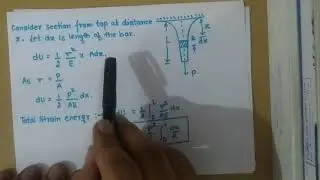 Consider section from top at distance
x. Let dx is length of the bar.
dU = 1/2 σ²/E x Adx.
As σ = P/A
dU = 1/2 P²/AE dx.
Total Strain energy :-
x
dx
L
P